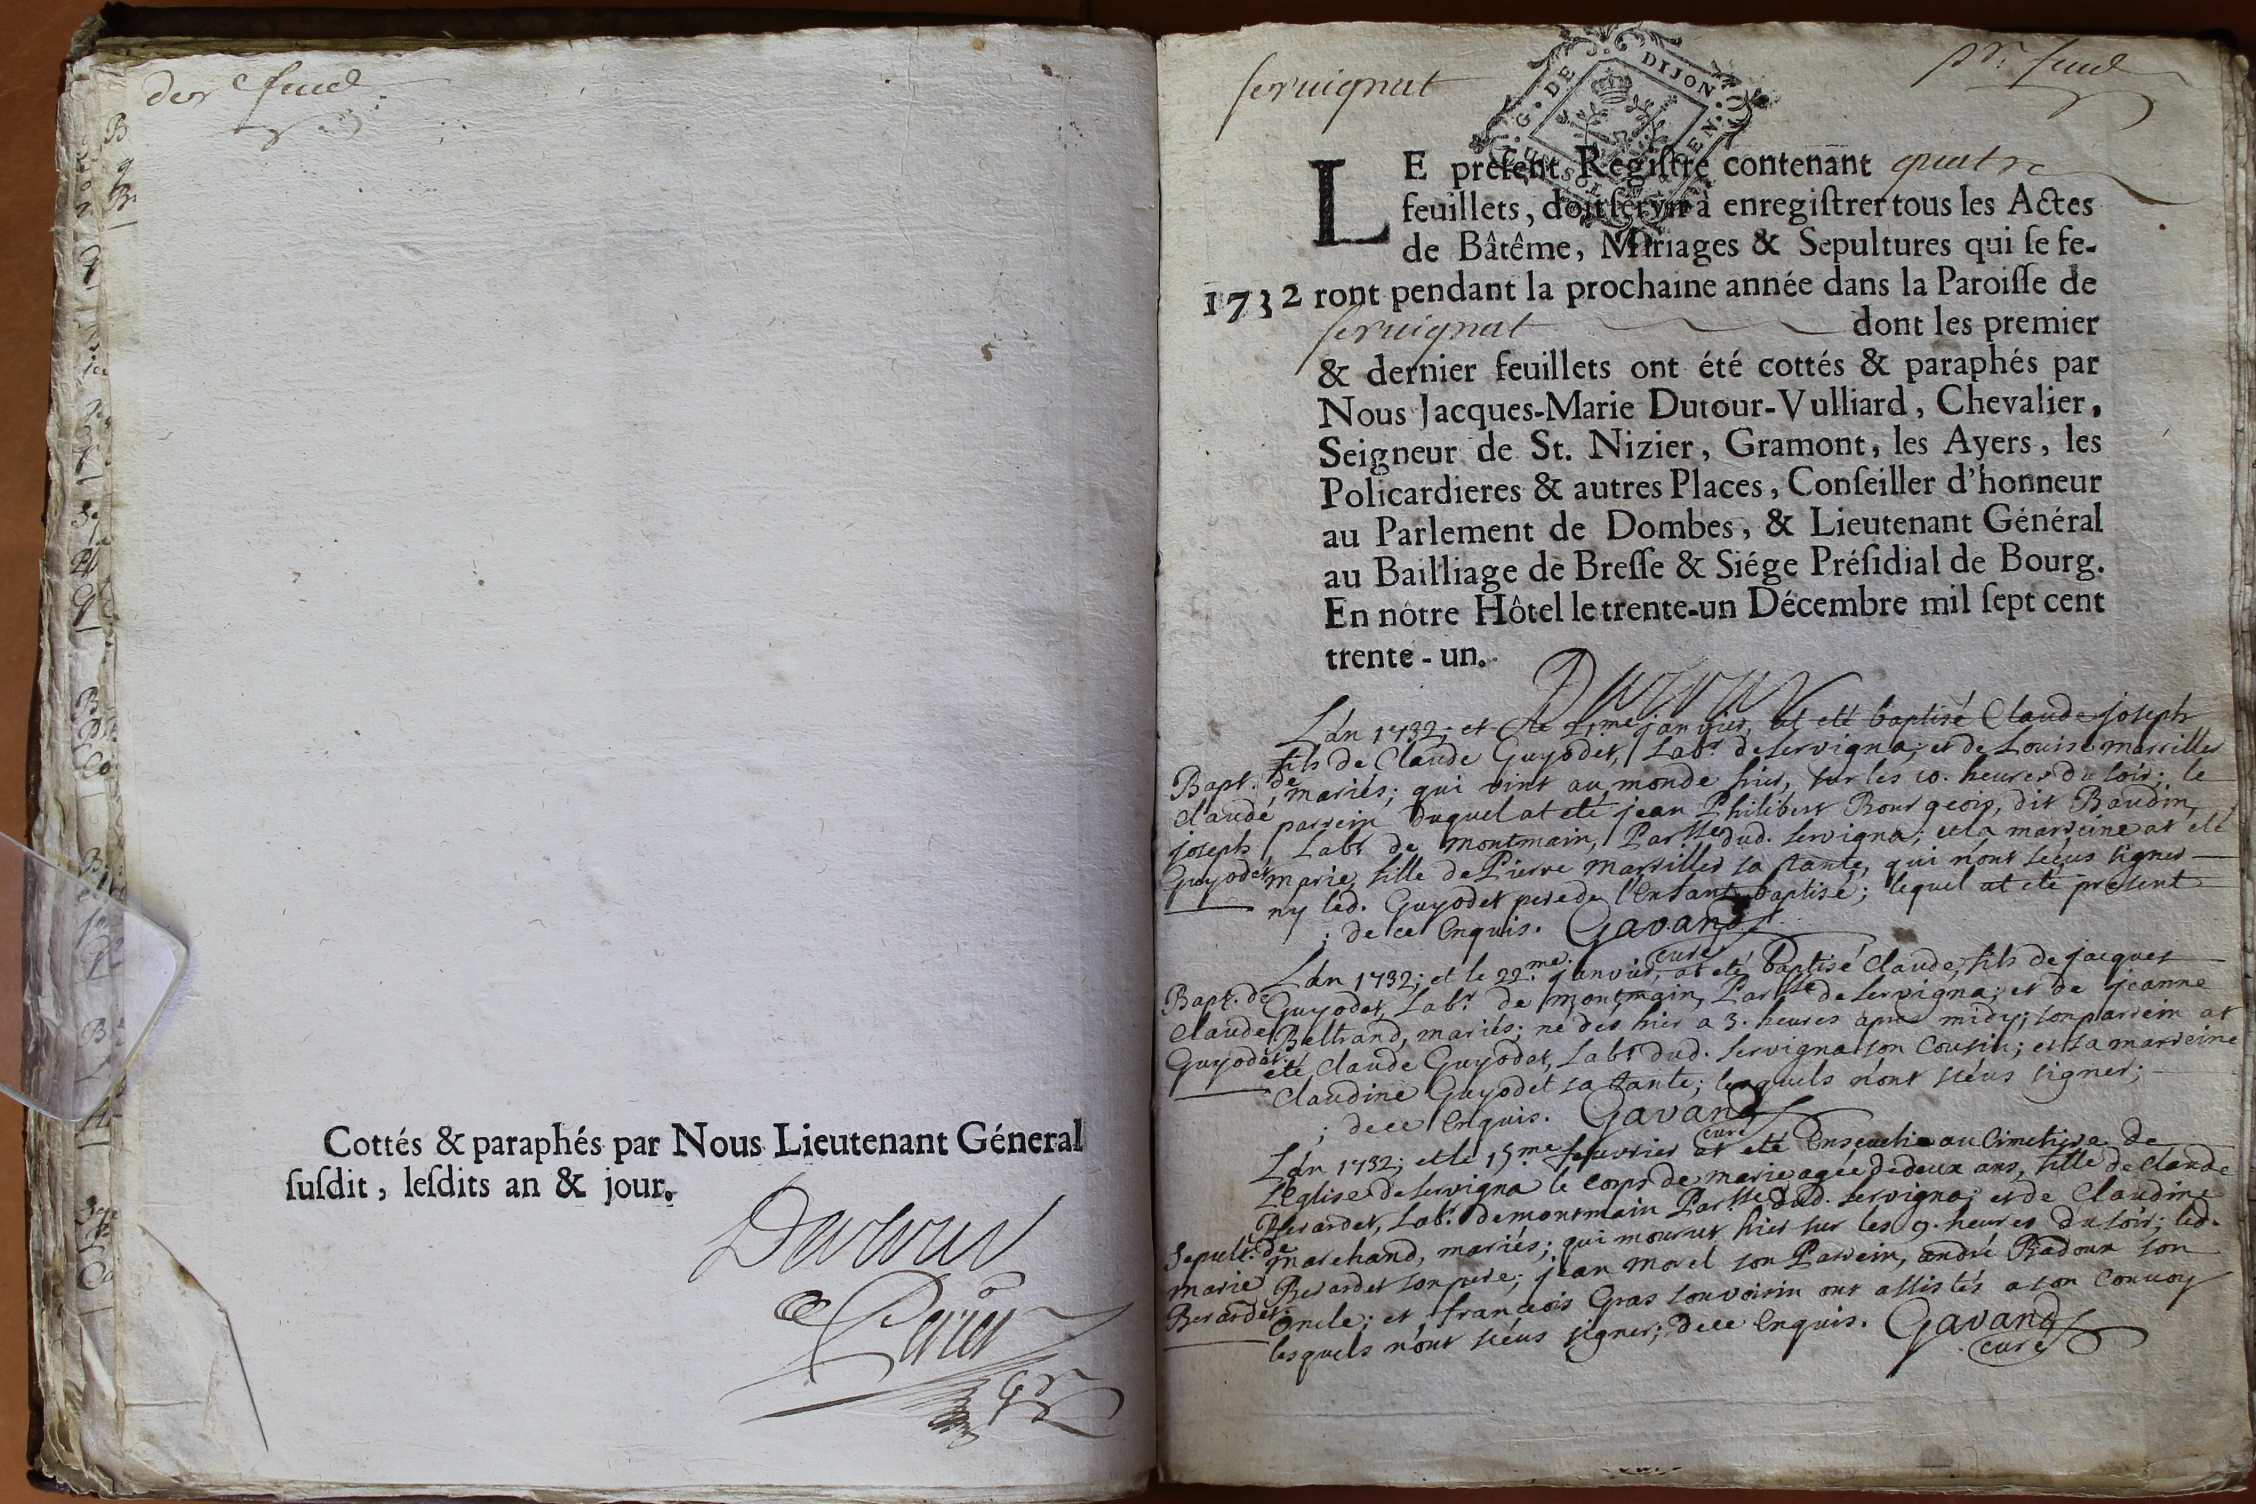 der feuil
Cottés & paraphés par Nous Lieutenant Géneral
ſuſdit, leſdits an & jour.
ſeruignat
pr. feuil
G. DE DIJON
LE preſent Regiſtre contenant quatre
feuillets, doit ſervir à enregiſtrer tous les Actes
de Bâtême, Mariages & Sepultures qui ſe fe-
1732 ront pendant la prochaine année dans la Paroiſſe de
ſeruignat dont les premier
& dernier feuillets ont été cottés & paraphés par
Nous Jacques-Marie Dutour-Vulliard, Chevalier,
Seigneur de St. Nizier, Gramont, les Ayers, les
Policardieres & autres Places, Conſeiller d'honneur
au Parlement de Dombes, & Lieutenant Général
au Bailliage de Breſſe & Siége Préſidial de Bourg.
En nôtre Hôtel le trente-un Décembre mil ſept cent
trente-un.
Dutour
L'an 1732; et le 21.me janvier, at eté baptisé Claude joseph
fils de Claude Guyodet, Labr. de Servigna; et de Louise marillier
Bapt. de
mariés; qui vint au monde hier, sur les 10. heures du soir; le
claude
parrein duquel at eté jean Philibert Bourgeois, dit Baudin,
joseph
Labr. de montmain, Parsse dud. Servigna; et la marreine at eté
Guyodet
marie, fille de Pierre marillier sa tante, qui n'ont sçéus signer
ny led. Guyodet pere de l'enfant baptisé; lequel at eté present
; de ce enquis. Gavand
curé
L'an 1732; et le 22.me janvier, at eté baptisé claude, fils de jacques
Bapt. de
Guyodet, Labr. de montmain, Parsse de Servigna; et de jeanne
claude
Beltrand, mariés; né dés hier a 3. heures aprés midy; son parrein at
Guyodet.
eté Claude Guyodet, Labr. dud. Servigna son Cousin; et sa marreine
Claudine Guyodet sa tante; lesquels n'ont sçéus signer;
; de ce enquis. Gavand
curé
L'an 1732; et le 15.me feuvrier at eté Enseuelie au Cimetiere de
l'Eglise de Servigna le Corps de marie agée de deux ans, fille de Claude
Berardet, Labr. de montmain Parsse dud. Servigna; et de Claudine
Sepult. de
marchand, mariés; qui mourut hier sur les 9. heures du soir; led.
marie
Berardet son pere; jean morel son Parrein, andré Radoux son
Berardet.
oncle; et françois Gras son voisin ont assistés a son Convoy
lesquels n'ont sçéus signer; de ce Enquis. Gavand
curé